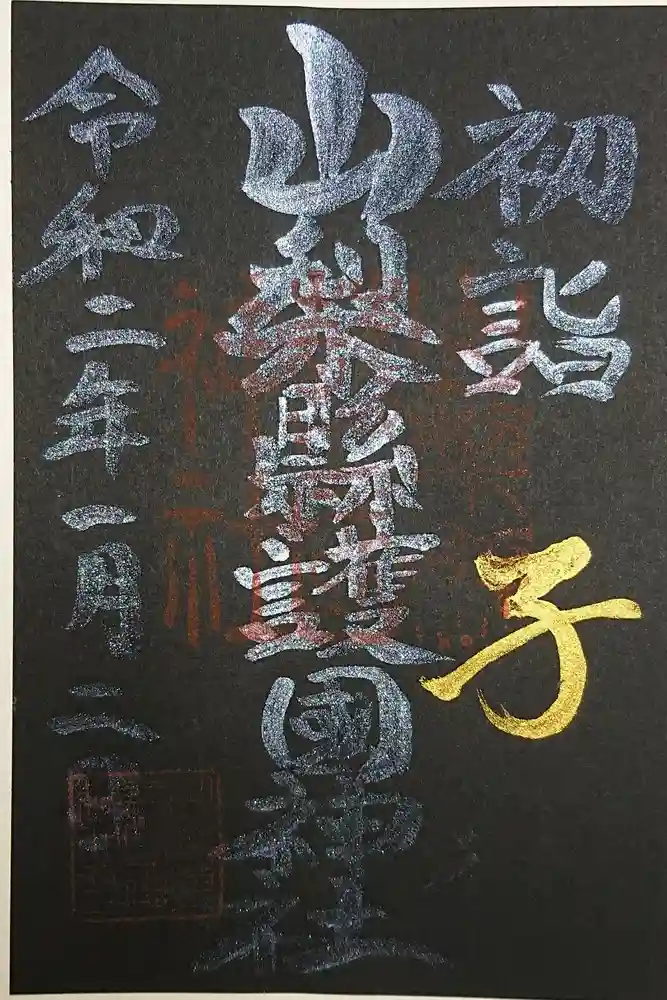 初詣
子
山梨縣護國神社
令和二年一月二